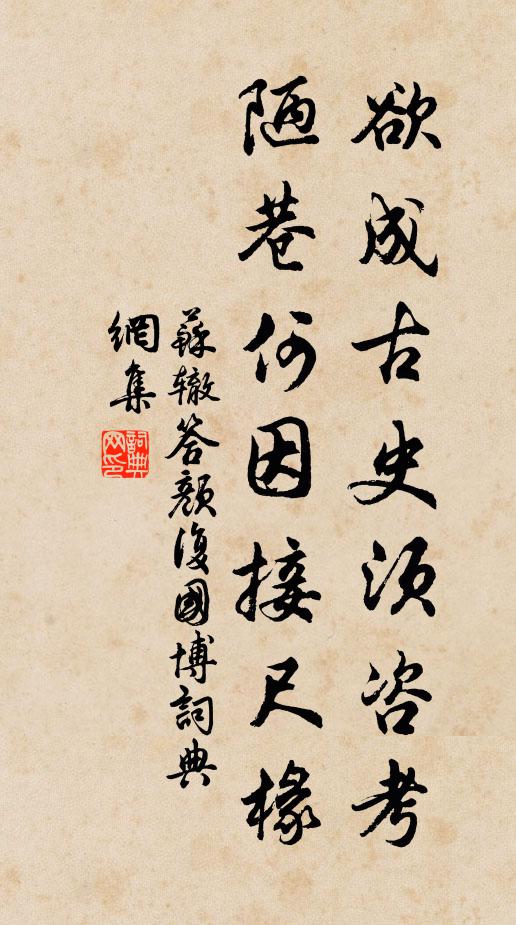 欲成古史須咨考
陋巷何因接尺椽
蘇辙答顏復國博詞典
網集
詞典網印